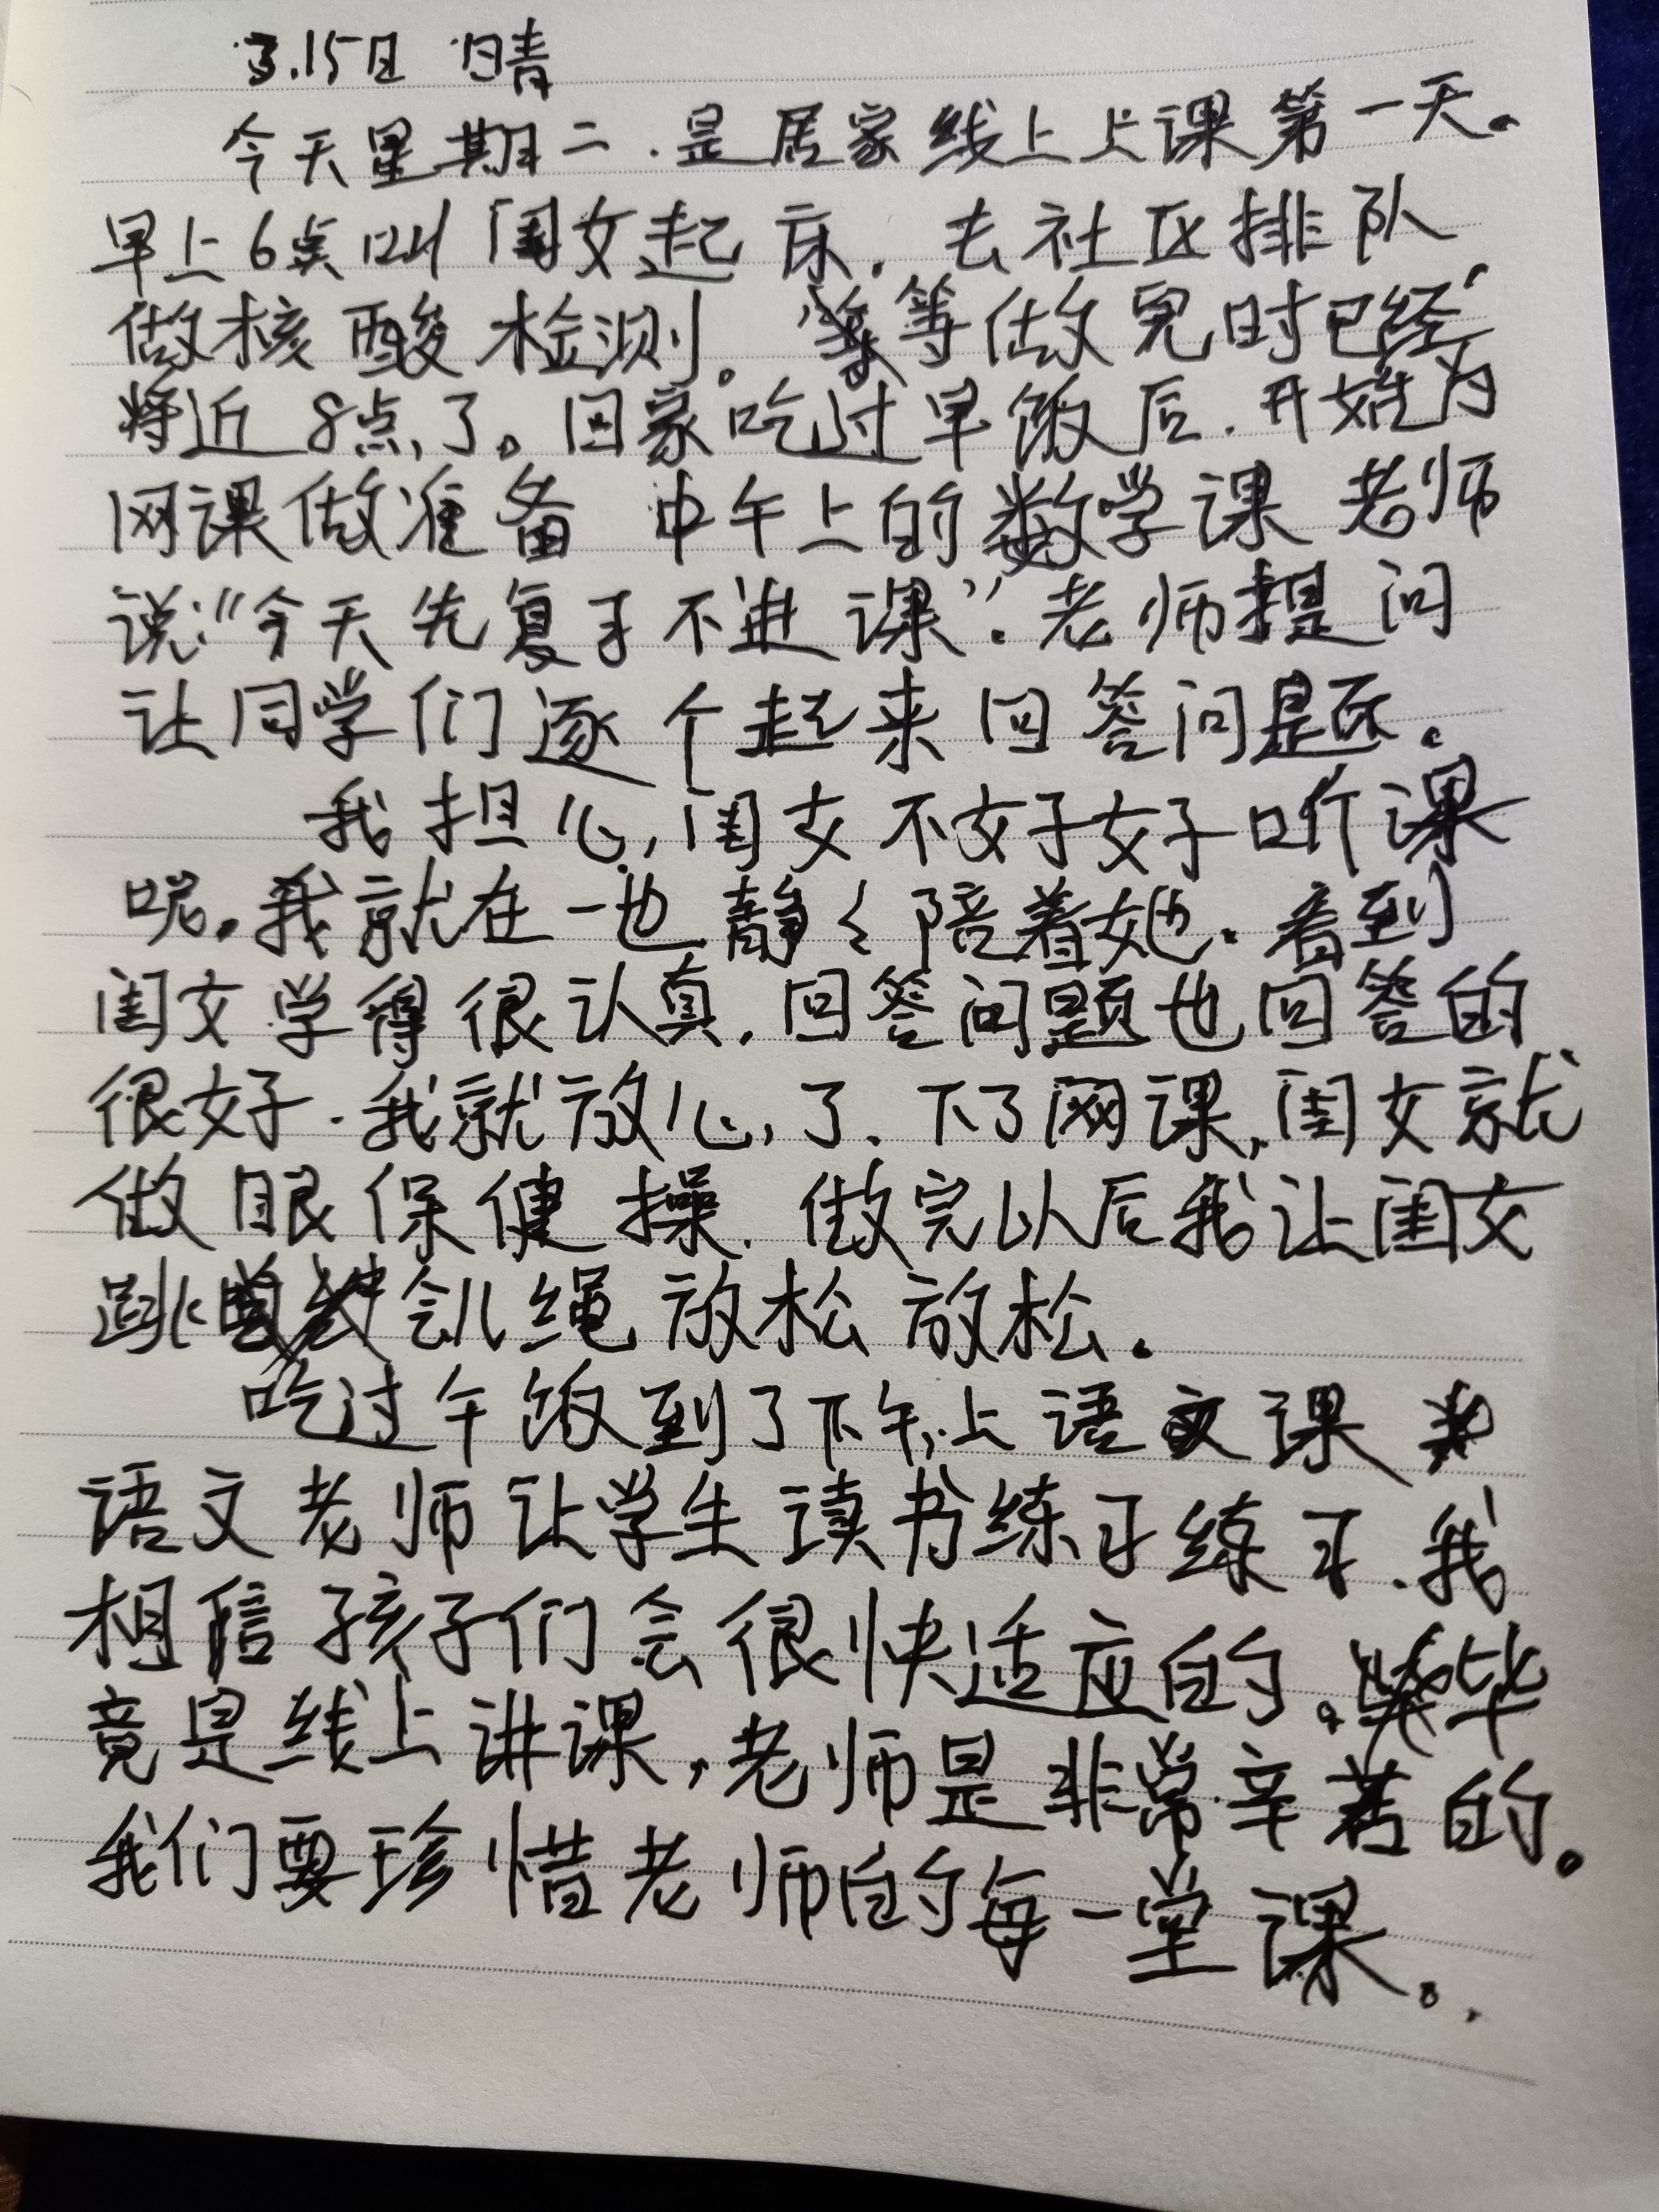 3.15日 晴
今天星期二.是居家线上上课第一天。
早上6点叫闺女起床.去社区排队
做核酸检测。等做完时已经
将近8点了。回家吃过早饭后.开始为
网课做准备 中午上的数学课 老师
说:“今天先复习不进课”.老师提问
让同学们逐个起来回答问题。
我担心闺女不好好听课
呢。我就在一边静々陪着她.看到
闺女学得很认真.回答问题也回答的
很好.我就放心了.下了网课,闺女就
做眼保健操.做完以后我让闺女
跳会儿绳放松放松。
吃过午饭到了下午,上语文课
语文老师让学生读书练习练习.我
相信孩子们会很快适应的。毕
竟是线上讲课,老师是非常辛苦的。
我们要珍惜老师的每一堂课。